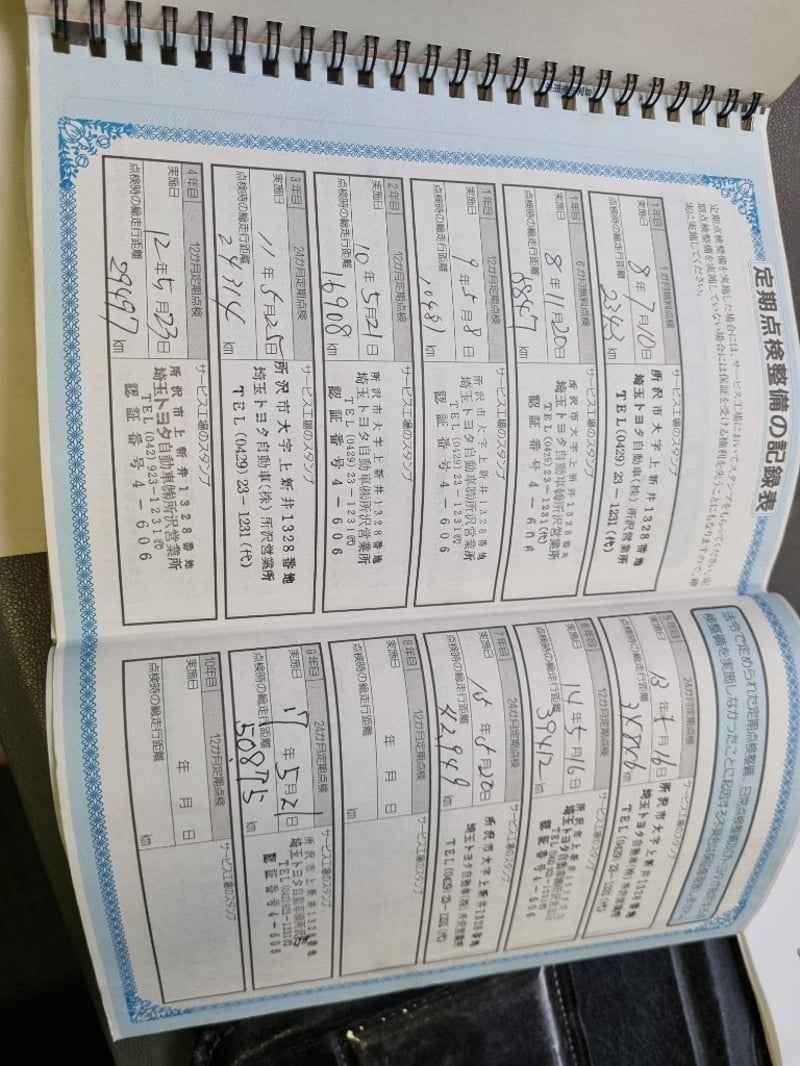 定期点検整備の記録表
定期点検整備を実施した場合には、サービス工場においてスタンプをもらってください。定
期点検整備を実施していない場合には保証を受ける権利を失うことにもなりますので、確
実に実施してください。
1年目 1か月無料点検 サービス工場のスタンプ
実施日 8年7月10日
点検時の総走行距離 2343 km
所沢市大字上新井1328番地
埼玉トヨタ自動車(株)所沢営業所
TEL(0429)23-1231(代)
1年目 6か月無料点検 サービス工場のスタンプ
実施日 8年11月20日
点検時の総走行距離 5847 km
所沢市大字上新井1328番地
埼玉トヨタ自動車㈱所沢営業所
TEL(0429)23-1231(代)
認証番号4-606
1年目 12カ月定期点検 サービス工場のスタンプ
実施日 9年5月8日
点検時の総走行距離 10481 km
所沢市大字上新井1328番地
埼玉トヨタ自動車㈱所沢営業所
TEL(0429)23-1231(代)
認証番号4-606
2年目 12カ月定期点検 サービス工場のスタンプ
実施日 10年5月21日
点検時の総走行距離 16908 km
所沢市大字上新井1328番地
埼玉トヨタ自動車㈱所沢営業所
TEL(0429)23-1231(代)
認証番号4-606
3年目 24カ月定期点検 サービス工場のスタンプ
実施日 11年5月25日
点検時の総走行距離 24314 km
所沢市大字上新井1328番地
埼玉トヨタ自動車(株)所沢営業所
TEL(0429)23-1231(代)
4年目 12カ月定期点検 サービス工場のスタンプ
実施日 12年5月23日
点検時の総走行距離 29697 km
所沢市上新井1328番地
埼玉トヨタ自動車㈱所沢営業所
TEL(042)923-1231(代)
認証番号4-606
法令で定められた定期点検整備、日常点検整備
検整備を実施しなかったことに起因する不具合は保証修理
5年目 24カ月定期点検 サービス工場のスタンプ
実施日 13年 月16日
点検時の総走行距離 km
所沢市大字上新井1328番地
埼玉トヨタ自動車(株)所沢営業所
TEL(0429)23-1231(代)
6年目 12カ月定期点検 サービス工場のスタンプ
実施日 14年5月16日
点検時の総走行距離 39412 km
所沢市上新井
埼玉トヨタ自動車
認証番号4-606
7年目 12カ月定期点検 サービス工場のスタンプ
実施日 15年5月20日
点検時の総走行距離 42949 km
所沢市大字上新井1328番地
埼玉トヨタ自動車(株)所沢営業所
TEL(0429)23-1231(代)
8年目 12カ月定期点検 サービス工場のスタンプ
実施日 年 月 日
点検時の総走行距離 km
9年目 24カ月定期点検 サービス工場のスタンプ
実施日 17年5月21日
点検時の総走行距離 50875 km
所沢市上新井1328番地
埼玉トヨタ自動車㈱所沢
TEL(042)923-1231(代)
認証番号4-606
10年目 12カ月定期点検 サービス工場のスタンプ
実施日 年 月 日
点検時の総走行距離 km